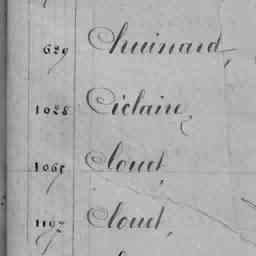 629 Chuinard,
1028 Ciclaire,
1065 Clouet,
1197 Clouet,